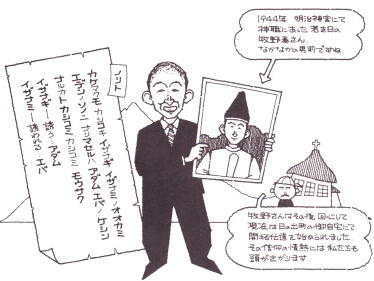 1944年 明治神宮にて
神職にあった 若き日の
牧野さん.
なかなかの男前ですね
ノリト
カケマクモ カシコキ イザナギ イザナミノ オオカミ
エデンノソノニ ナリマセルハ アダム エバノ ケシン
ナルカト カシコミ カシコミ モウサク
イザナギ―誘う―アダム
イザナミ―誘われる―エバ
牧野さんはその後、回心して
現在は日の出町の御自宅にて
開拓伝道を始められました.
その信仰の情熱には私たちも
頭がさがります